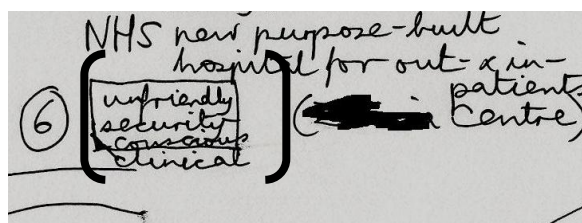 NHS new purpose-built
hospital for out- & in-
patients
6 [unfriendly (Centre)
security
conscious
clinical]